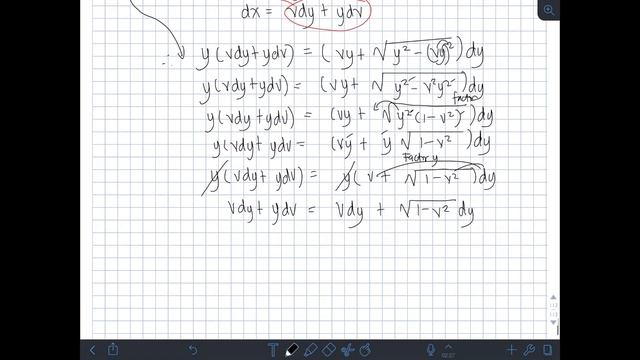 dx = vdy + ydv
∴ y(vdy+ydv) = (vy + √(y² - (vy)²))dy
y(vdy+ydv) = (vy + √(y² - v²y²))dy
factor
y(vdy+ydv) = (vy + √(y²(1-v²)))dy
y(vdy+ydv = (vy + y√(1-v²))dy
factor y
y(vdy+ydv) = y(v + √(1-v²))dy
vdy + ydv = vdy + √(1-v²) dy